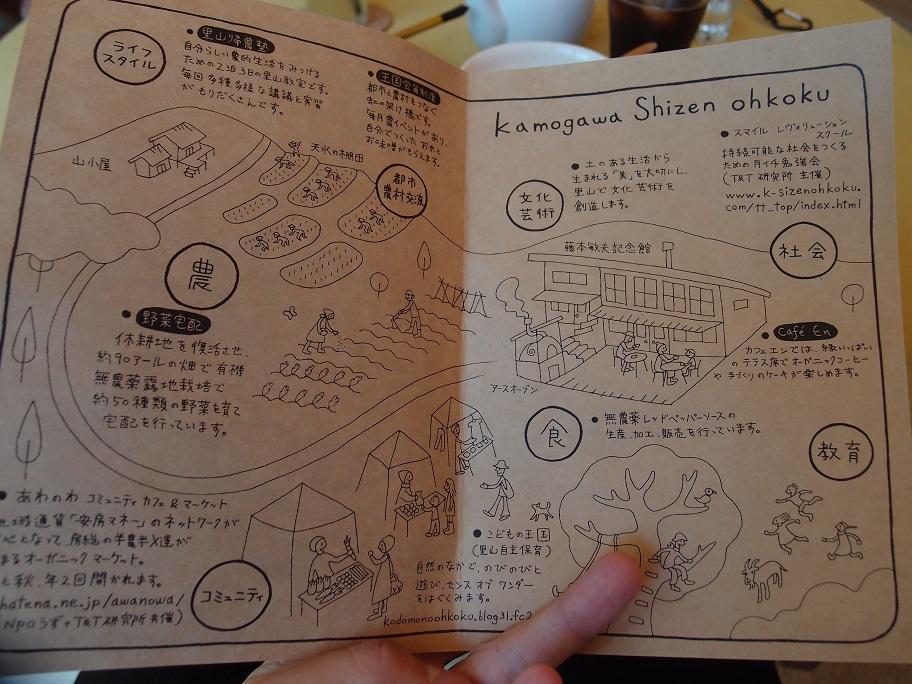 ライフ
スタイル
• 里山帰農塾
自分らしい農的生活をみつける
ための2泊3日の里山教室です。
毎回多種多様な講議と実習
がもりだくさんです。
• 王国会員制度
都市と農村をつなぐ
虹の架け橋です。
毎月農イベントがあり、
自分でつくったお米と
お味噌がもらえます。
山小屋
天水の棚田
都市
農村交流
農
• 野菜宅配
休耕地を復活させ、
約90アールの畑で有機
無農薬露地栽培で
約50種類の野菜を育て
宅配を行っています。
• あわのわ コミュニティカフェ&マーケット
域通貨「安房マネー」のネットワークが
心となって、房総の半農半X達が
まるオーガニックマーケット。
と秋、年2回開かれます。
hatena.ne.jp/awanowa/
NPOうず+T&T研究所共催)
コミュニティ
kamogawa Shizen ohkoku
• 土のある生活から
生まれる「美」を大切にし、
里山で文化芸術を
創造します。
文化
芸術
• スマイル レヴォリューション
スクール
持続可能な社会をつくる
ための月イチ勉強会
(T&T研究所 主催)
www.k-sizenohkoku.
com/tt_top/index.html
社会
藤本敏夫記念館
アースオーブン
• Café En
カフェエンでは、緑いっぱい
のテラス席でオーガニックコーヒー
や手づくりのケーキが楽しめます。
食
• 無農薬レッドペッパーソースの
生産、加工、販売を行っています。
教育
• こどもの王国
(里山自主保育)
自然のなかで、のびのびと
遊び、センス オブ ワンダー
をはぐくみます。
kodomonoohkoku.blog31.fc2